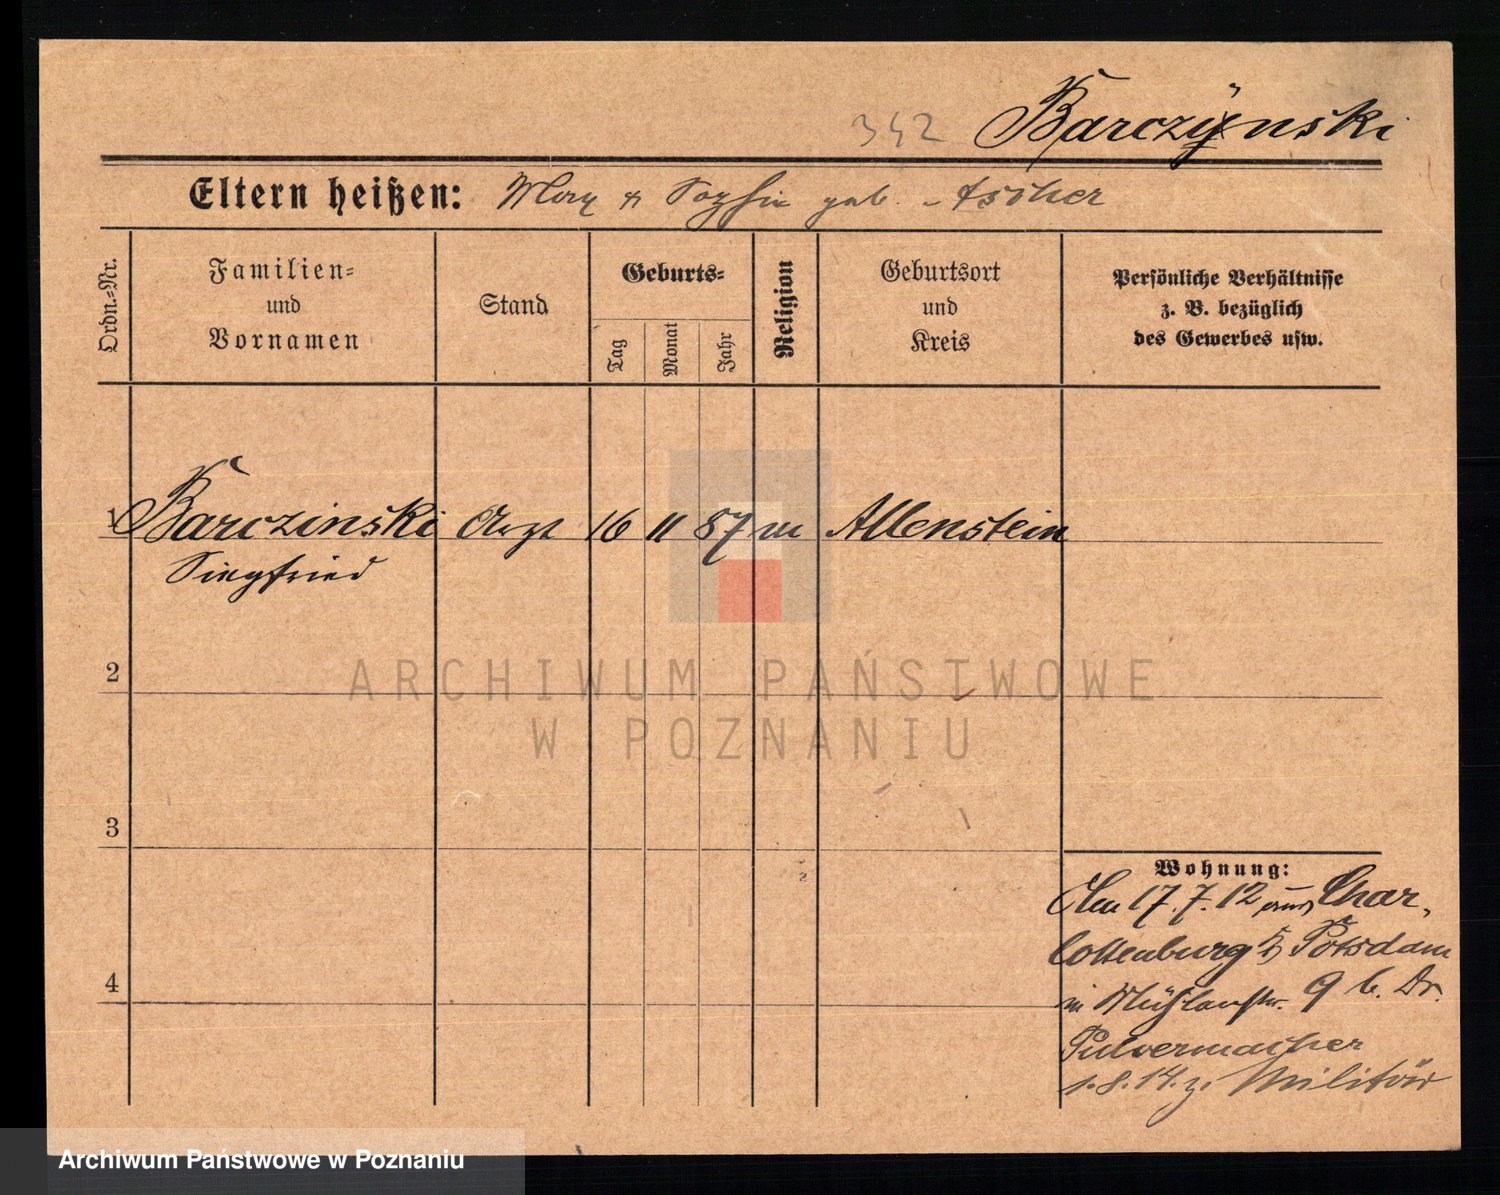 342 Barczynski
Eltern heißen: Mory & Sophie geb. Ascher
Ordn.=Nr.
Familien=
und
Vornamen
Stand
Geburts=
Tag
Monat
Jahr
Religion
Geburtsort
und
Kreis
Persönliche Verhältnisse
z. B. bezüglich
des Gewerbes usw.
1 Barczinski Arzt 16 11 87 m Allenstein
Siegfried
2
ARCHIWUM PAŃSTWOWE
W POZNANIU
3
4
Wohnung:
Am 17.7.12 aus Char-
lottenburg b/ Potsdam
in Mühlenstr. 9 b. Dr.
Pulvermacher
1.8.14. z. Militär
Archiwum Państwowe w Poznaniu